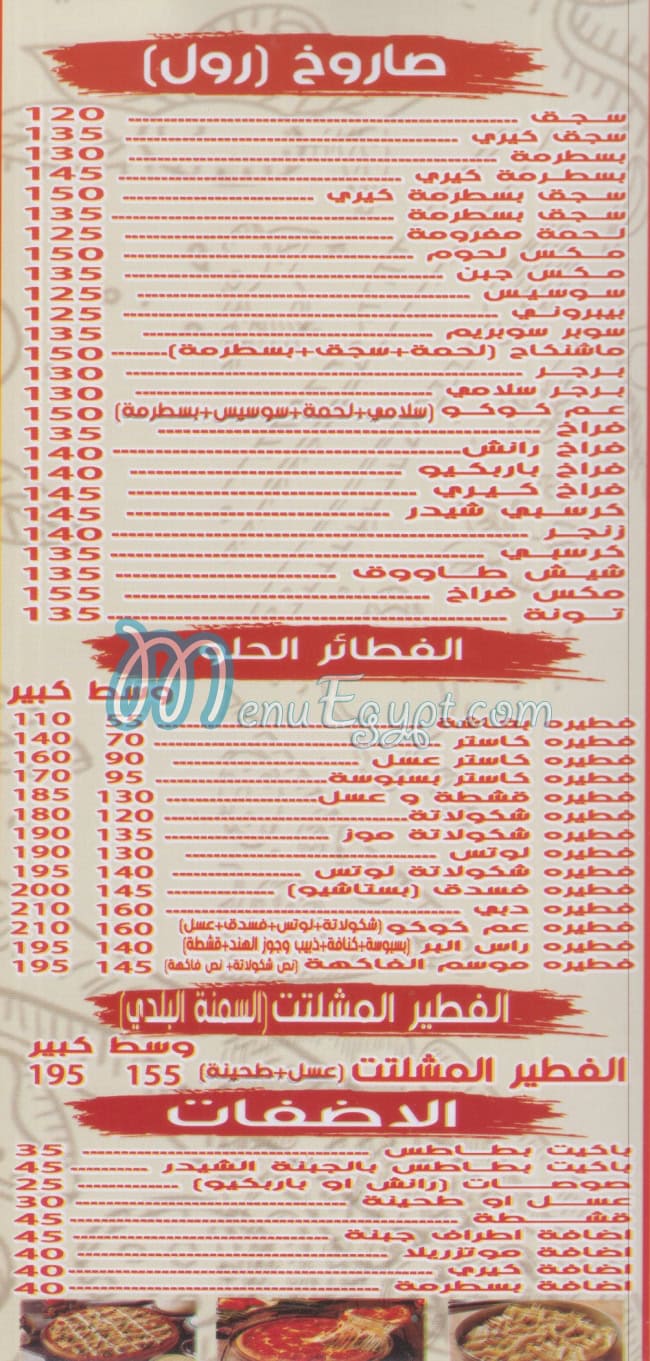 صاروخ (رول)
سجق 120
سجق كيري 135
بسطرمة 130
بسطرمة كيري 145
سجق بسطرمة كيري 150
سجق بسطرمة 135
لحمة مفرومة 125
مكس لحوم 150
مكس جبن 135
سوسيس 125
بيبروني 125
سوبر سوبريم 135
ماشنكاح (لحمة+سجق+بسطرمة) 150
برجر 130
برجر سلامي 130
عم كوكو (سلامي+لحمة+سوسيس+بسطرمة) 150
فراخ 135
فراخ رانش 140
فراخ باربكيو 140
فراخ كيري 145
كرسبي شيدر 145
زنجر 140
كرسبي 135
شيش طاووق 135
مكس فراخ 155
تونة 135
الفطائر الحلو
MenuEgypt.com
وسط كبير
فطيره 110
فطيره كاستر 70 140
فطيره كاستر عسل 90 160
فطيره كاستر بسبوسة 95 170
فطيره قشطة و عسل 130 185
فطيره شكولاتة 120 180
فطيره شكولاتة موز 135 190
فطيره لوتس 130 190
فطيره شكولاتة لوتس 140 195
فطيره فسدق (بستاشيو) 145 200
فطيره دبي 160 210
فطيره عم كوكو (شكولاتة+لوتس+فسدق+عسل) 160 210
فطيره راس البر (بسبوسة+كنافة+ذبيب وجوز الهند+قشطة) 140 195
فطيره موسم الفاكهة (نص شكولاتة+ نص فاكهة) 145 195
الفطير المشلتت (السمنة البلدي)
وسط كبير
الفطير المشلتت (عسل+طحينة) 155 195
الاضفات
باكيت بطاطس 35
باكيت بطاطس بالجبنة الشيدر 45
صوصات (رانش او باربكيو) 25
عسل او طحينة 30
قشطة 45
اضافة اطراف جبنة 45
اضافة موتزريلا 40
اضافة كيري 40
اضافة بسطرمة 40